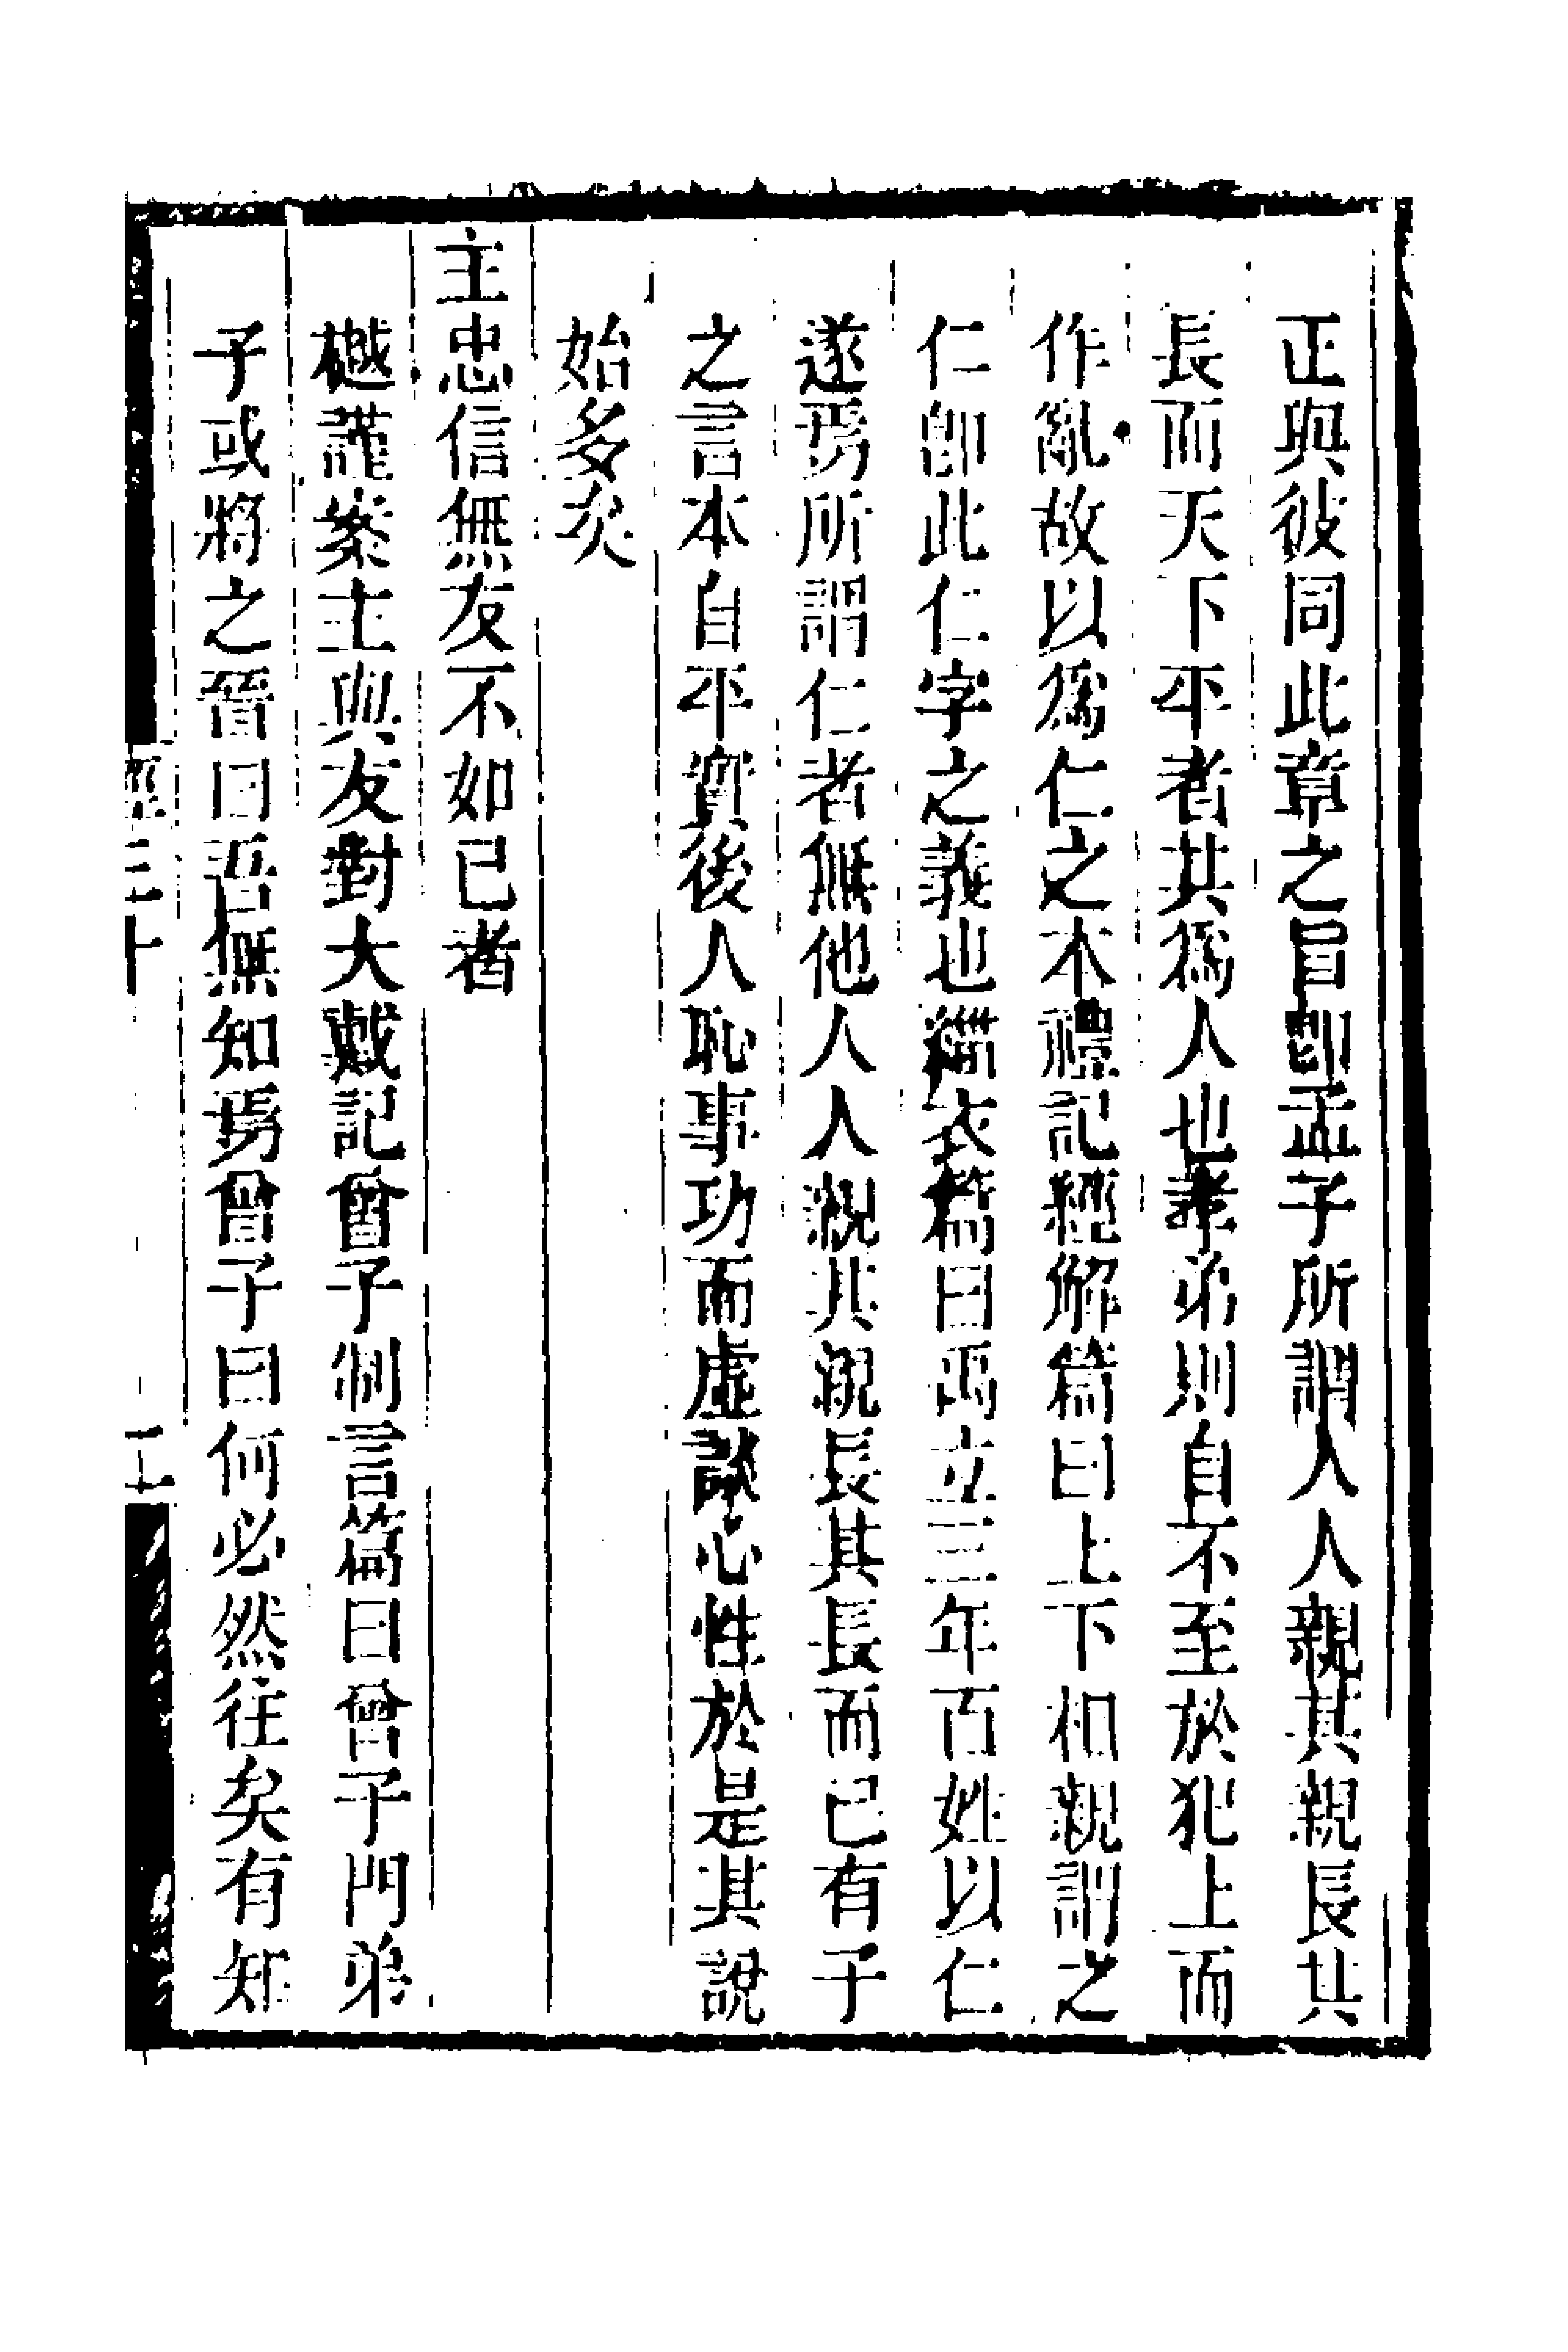 正與彼同此章之旨卽孟子所謂人人親其親長其
長而天下平者其爲人也孝弟則自不至於犯上而
作亂故以爲仁之本禮記經解篇曰上下相親謂之
仁卽此仁字之義也緇衣篇曰禹立三年百姓以仁
遂焉所謂仁者無他人人親其親長其長而已有子
之言本自平實後人恥事功而虛談心性於是其說
始多矣
主忠信無友不如已者
樾謹案主與友對大戴記曾子制言篇曰曾子門弟
子或將之晉曰吾無知焉曾子曰何必然往矣有知
經三十
二